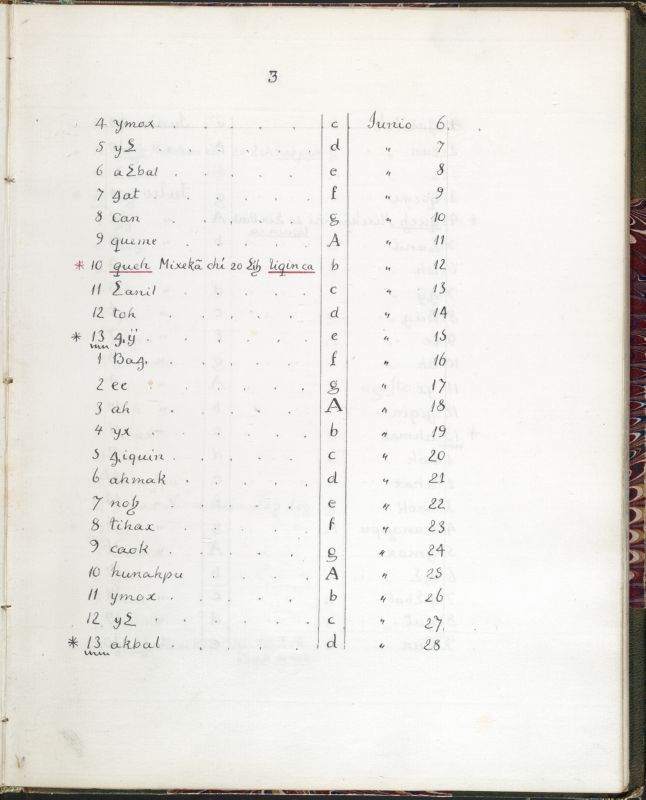 3
4 ymox . . . . . c Junio 6.
5 yƐ . . . . . d „ 7
6 aƐbal . . . . . e „ 8
7 ꜭat . . . . . f „ 9
8 can . . . . . g „ 10
9 queme . . . . . A „ 11
* 10 queh Mixekã chí 20 Ɛiꜧ tiqin ca b „ 12
11 Ɛanil . . . . . c „ 13
12 toh . . . . . d „ 14
* 13 ꜭ.ÿ . . . . . e „ 15
1 Baꜭ. . . . . . f „ 16
2 ee . . . . . g „ 17
3 ah . . . . . A „ 18
4 yx . . . . . b „ 19
5 ꜭiquin . . . . . c „ 20
6 ahmak . . . . . d „ 21
7 noꜧ . . . . . e „ 22
8 tihax . . . . . f „ 23
9 caok . . . . . g „ 24
10 hunahpu . . . . A „ 25
11 ymox . . . . . b „ 26
12 yƐ . . . . . c „ 27.
* 13 akbal . . . . . d „ 28